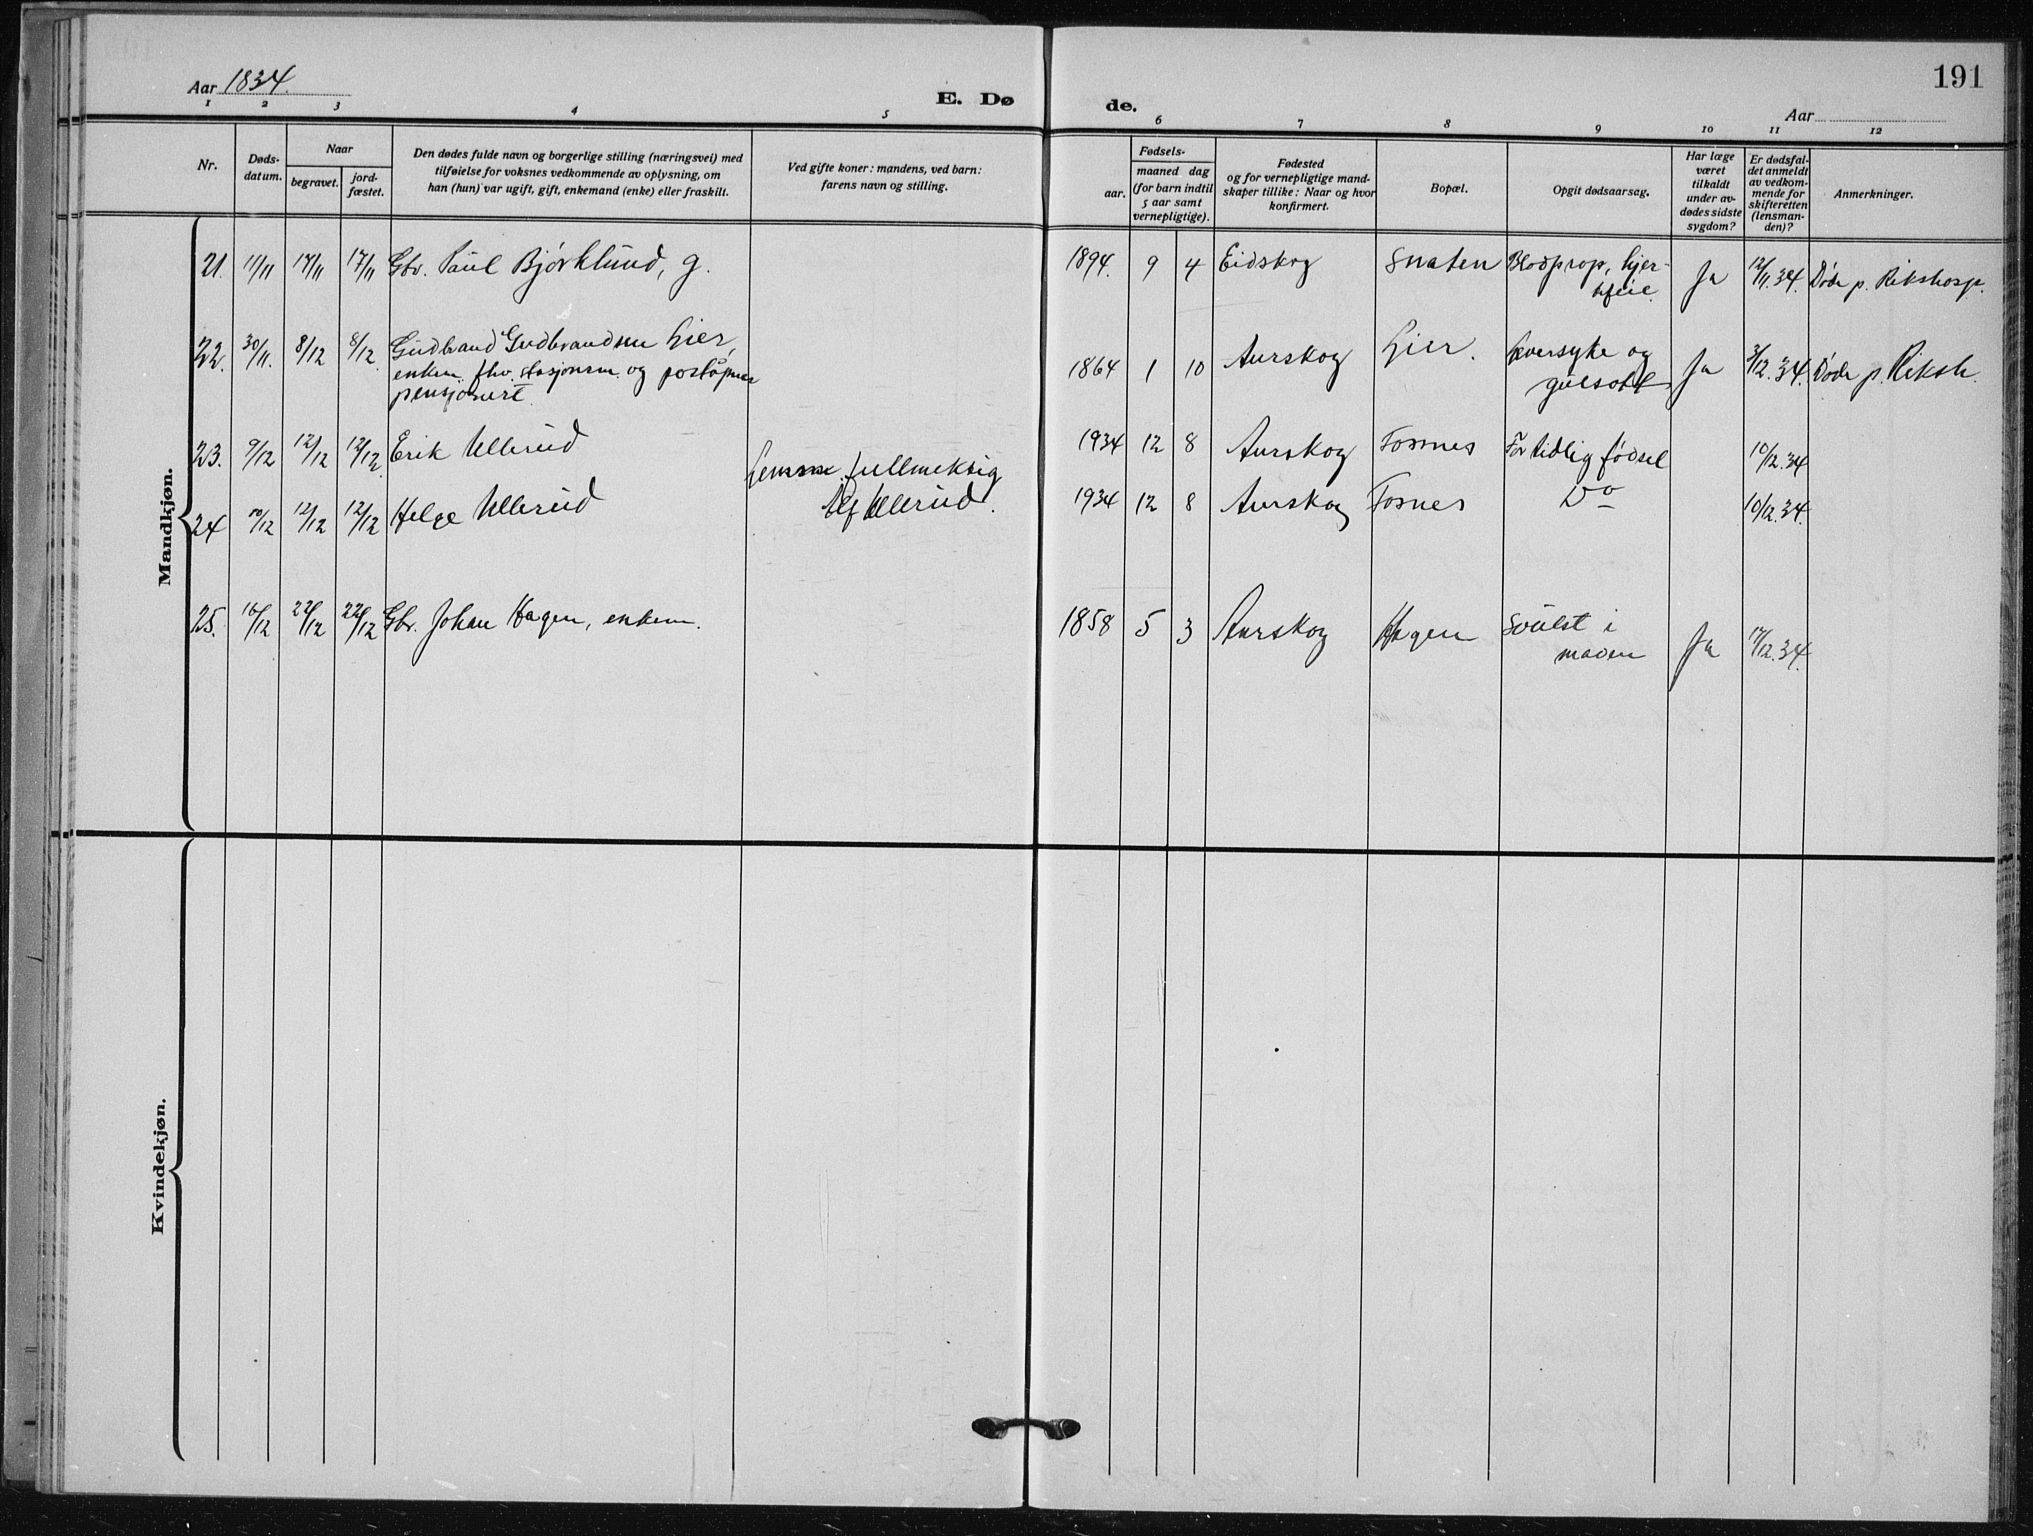 191
Aar 1834.
E. Dø
de.
Aar
1 2 3 4 5 6 7 8 9 10 11 12
Nr.
Døds-
datum.
Naar
begravet.
jord-
fæstet.
Den dødes fulde navn og borgerlige stilling (næringsvei) med
tilføielse for voksnes vedkommende av oplysning, om
han (hun) var ugift, gift, enkemand (enke) eller fraskilt.
Ved gifte koner: mandens, ved barn:
farens navn og stilling.
Fødsels-
aar.
maaned dag
(for barn indtil
5 aar samt
vernepligtige).
Fødested
og for vernepligtige mand-
skaper tillike: Naar og hvor
konfirmert.
Bopæl.
Opgit dødsaarsag.
Har læge
været
tilkaldt
under av-
dødes sidste
sygdom?
Er dødsfal-
det anmeldt
av vedkom-
mende for
skifteretten
(lensman-
den)?
Anmerkninger.
Mandkjøn.
21. 11/11 17/11 17/11 Gbr. Paul Bjørklund, g. 1894. 9 4 Eidskog Snaten Blodprop, hjer-
tefeil. Ja 12/11.34. Døde p. Rikshosp.
22. 30/11. 8/12 8/12. Gudbrand Gudbrandsen Lier,
enkem. fhv. stasjonsm. og poståpner
pensjonert. 1864 1 10 Aurskog Lier. Leversyke og
gulsott Ja 3/12.34. Døde p. Riksh.
23. 9/12 12/12 12/12. Erik Ullerud 1934 12 8 Aurskog Fosnes For tidlig fødsel 10/12.34
Lensm. fullmektig
Alf Ullerud.
24 10/12 12/12 12/12 Helge Ullerud 1934 12 8 Aurskog Fosnes Do 10/12.34.
25. 16/12 22/12 22/12 Gbr. Johan Hagen, enkem. 1858 5 3 Aurskog Hagen Svulst i
maven Ja 17/12.34.
Kvindekjøn.